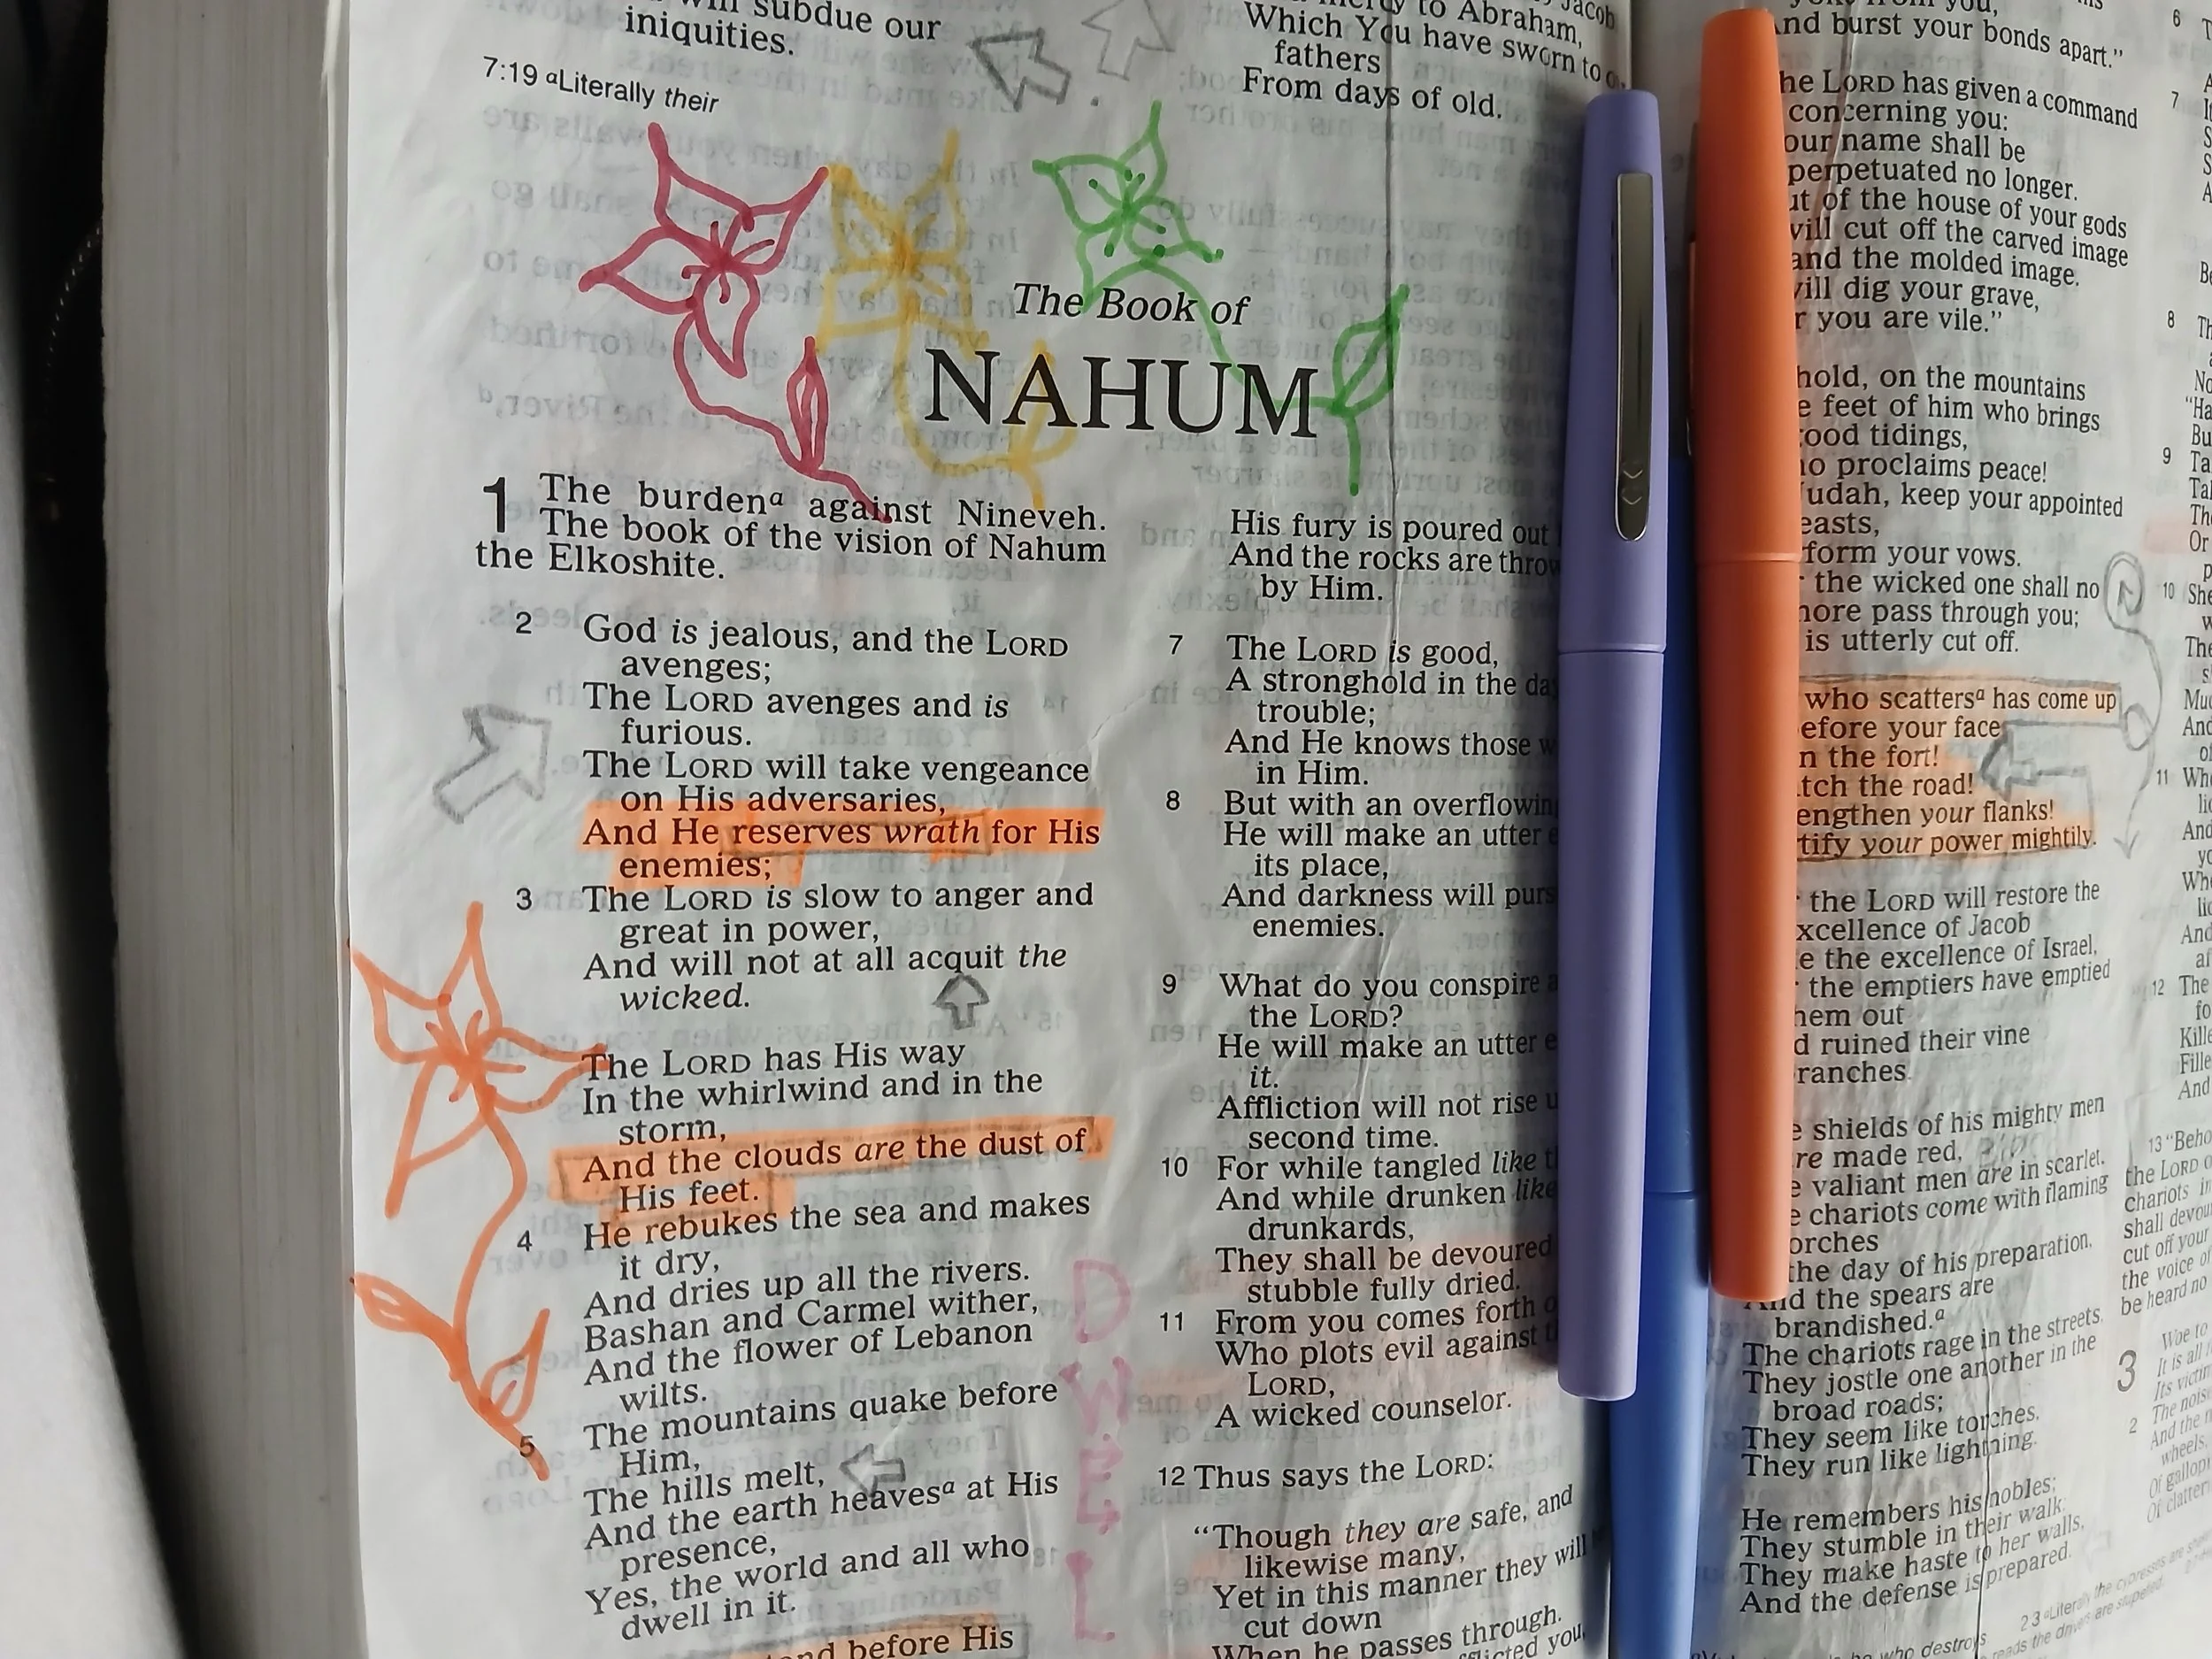 will subdue our
iniquities.
7:19 aLiterally their
mercy to Abraham,
Which You have sworn to
fathers
From days of old.
The Book of
NAHUM
1 The burdena against Nineveh.
The book of the vision of Nahum
the Elkoshite.
2 God is jealous, and the LORD
avenges;
The LORD avenges and is
furious.
The LORD will take vengeance
on His adversaries,
And He reserves wrath for His
enemies;
3 The LORD is slow to anger and
great in power,
And will not at all acquit the
wicked.
The LORD has His way
In the whirlwind and in the
storm,
And the clouds are the dust of
His feet.
4 He rebukes the sea and makes
it dry,
And dries up all the rivers.
Bashan and Carmel wither,
And the flower of Lebanon
wilts.
5 The mountains quake before
Him,
The hills melt,
And the earth heavesa at His
presence,
Yes, the world and all who
dwell in it.
before His
DWELL
His fury is poured out
And the rocks are
by Him.
7 The LORD is good,
A stronghold in the
trouble;
And He knows those
in Him.
8 But with an
He will make an utter
its place,
And darkness will
enemies.
9 What do you conspire
the LORD?
He will make an utter
it.
Affliction will not rise
second time.
10 For while tangled like
And while drunken like
drunkards,
They shall be devoured
stubble fully dried.
11 From you comes forth
Who plots evil against
LORD,
A wicked counselor.
12 Thus says the LORD:
"Though they are safe, and
likewise many,
Yet in this manner they will
cut down
When he passes through.
you,
And burst your bonds apart."
The LORD has given a command
concerning you:
our name shall be
perpetuated no longer.
of the house of your gods
will cut off the carved image
and the molded image.
will dig your grave,
you are vile."
hold, on the mountains
feet of him who brings
good tidings,
who proclaims peace!
Judah, keep your appointed
feasts,
form your vows.
the wicked one shall no
more pass through you;
is utterly cut off.
who scattersa has come up
before your face
the fort!
the road!
engthen your flanks!
tify your power mightily.
the LORD will restore the
excellence of Jacob
the excellence of Israel,
the emptiers have emptied
them out
ruined their vine
branches.
shields of his mighty men
are made red,
valiant men are in scarlet.
chariots come with flaming
torches
the day of his preparation,
And the spears are
brandished.a
The chariots rage in the streets,
They jostle one another in the
broad roads;
They seem like torches,
They run like lightning.
He remembers his nobles;
They stumble in their walk;
They make haste to her walls,
And the defense is prepared.
2:3 aLiterally the cypresses are
reads the drivers are stupefied.
who destroys
6
7
8
9
10 She
11
12 The
13 "Behold
the LORD
chariots in
shall devour
cut off your
the voice of
be heard no
3 Woe to
It is all
Its victim
2 The noise
And the
wheels,
Of
Of